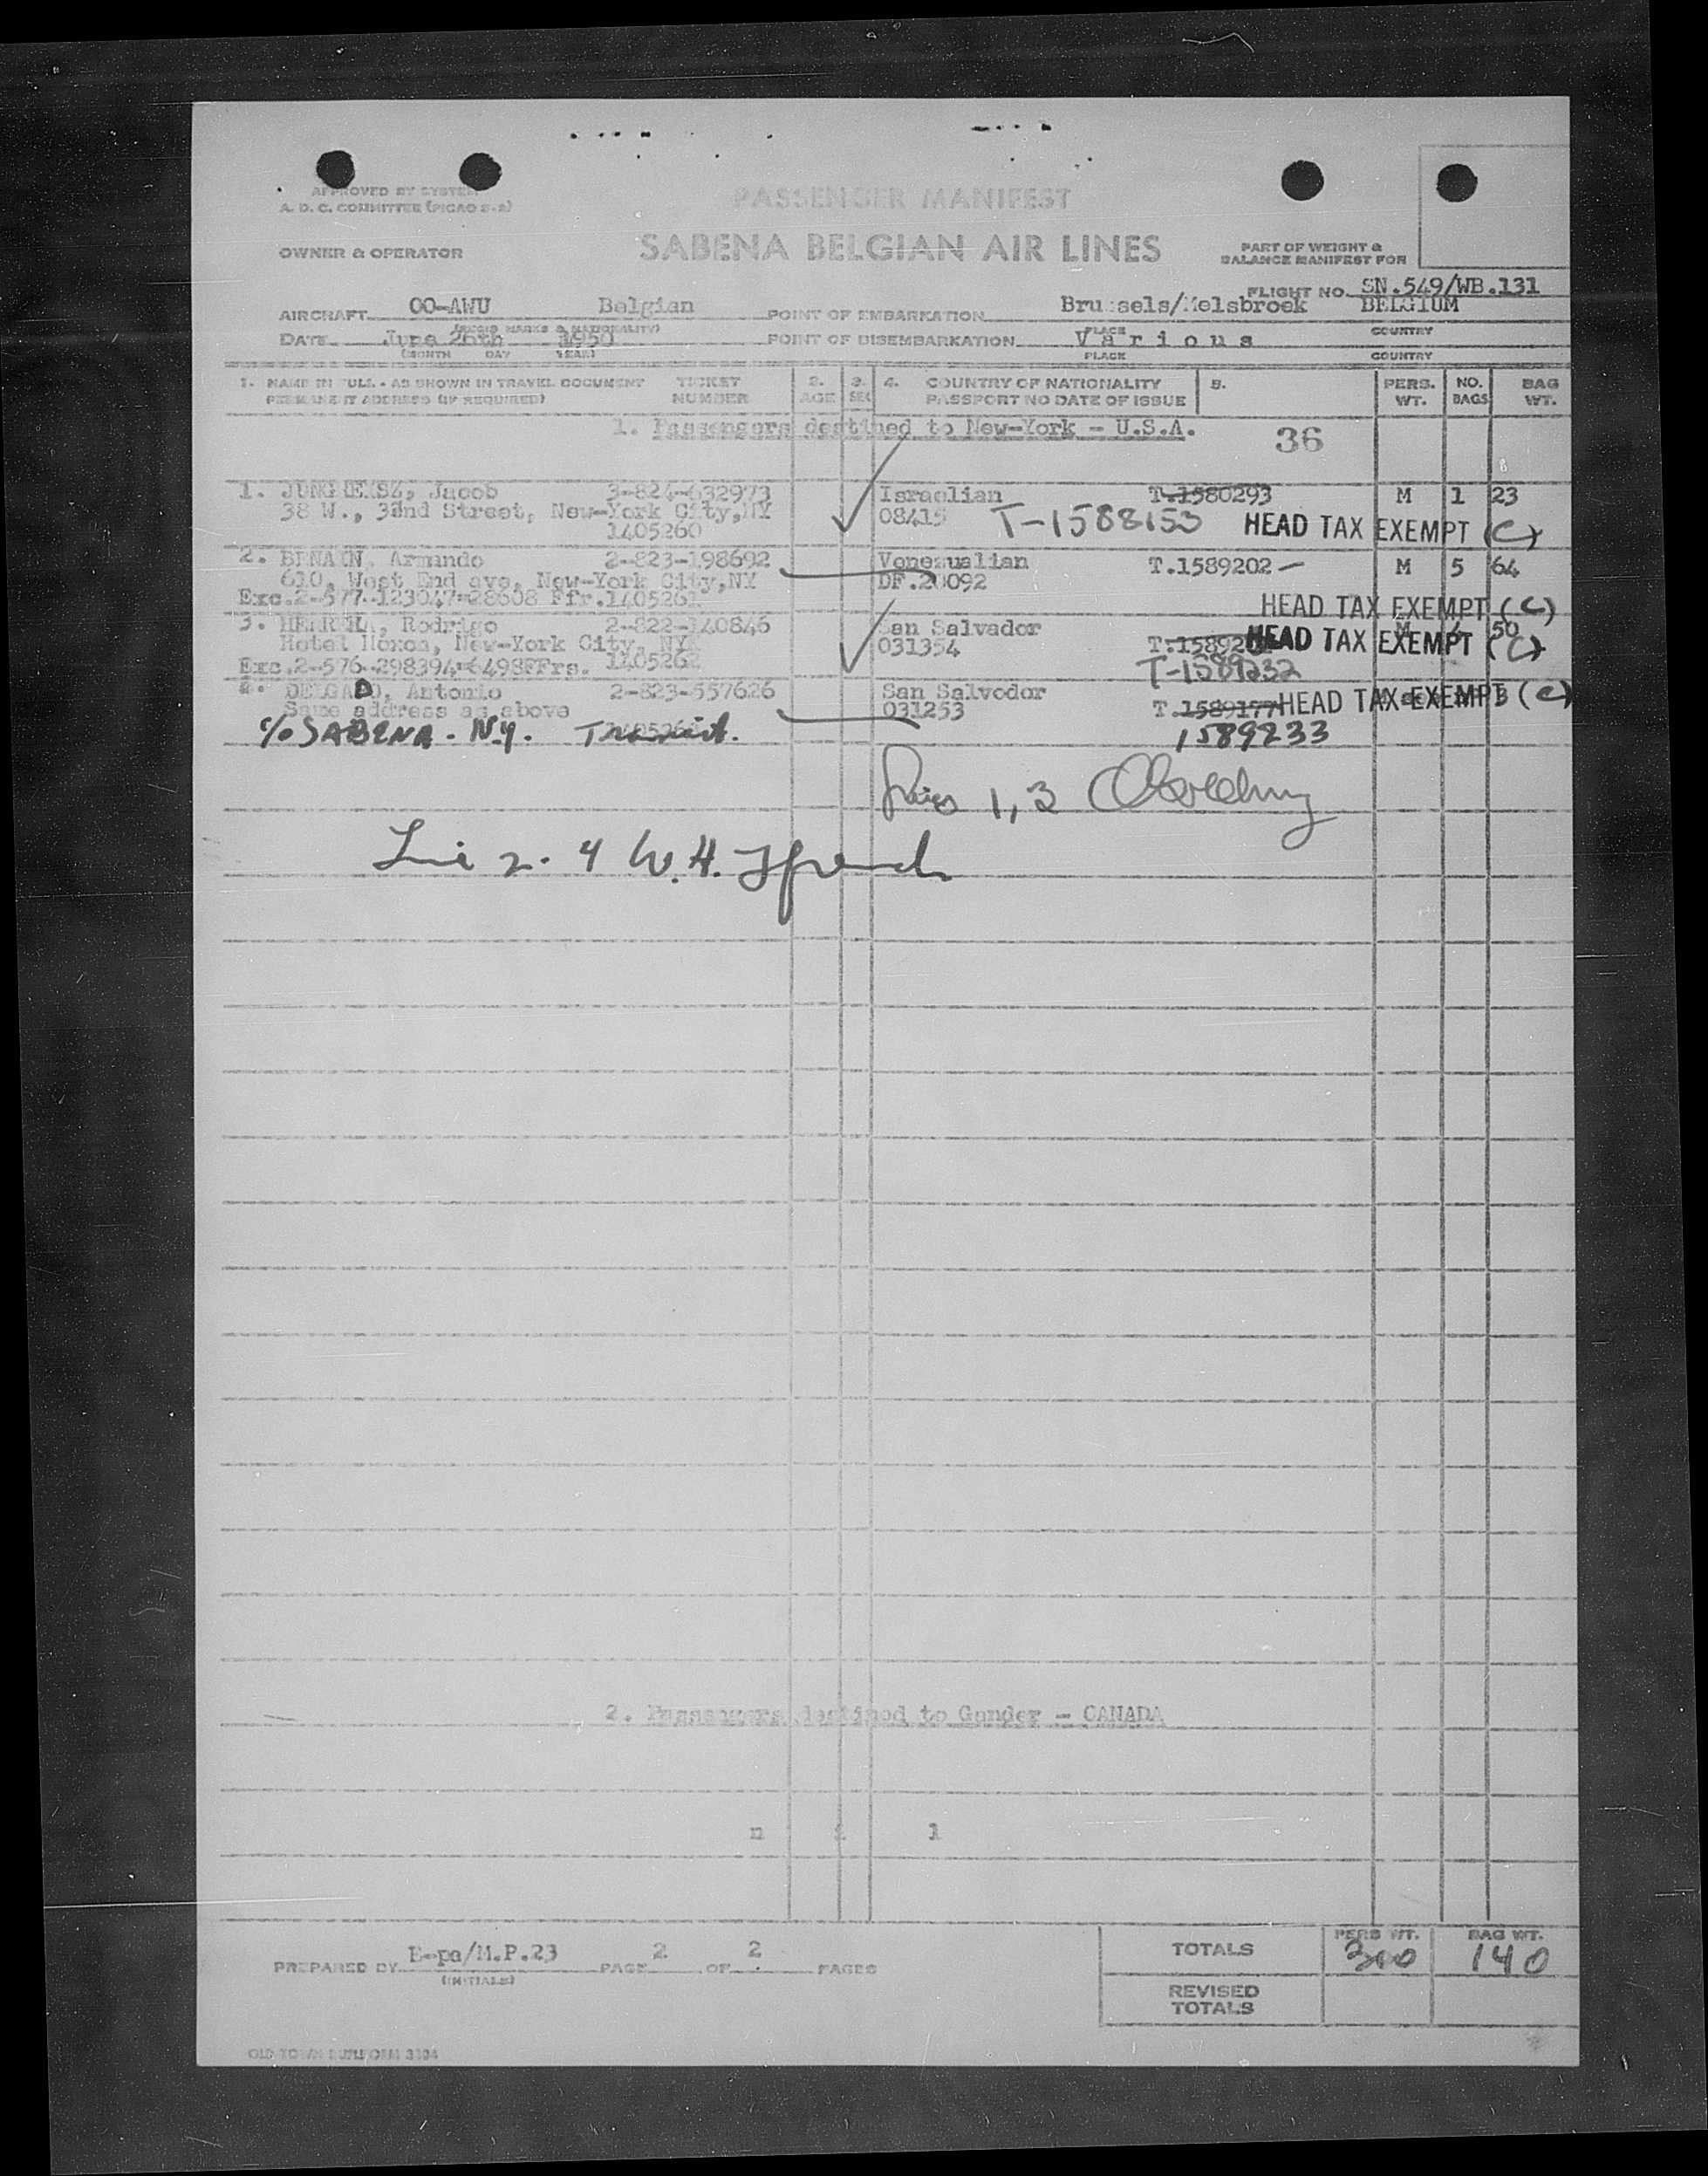 APPROVED BY SYSTEM
A. D. C. COMMITTEE (PICAO S-2)
PASSENGER MANIFEST
OWNER & OPERATOR
SABENA BELGIAN AIR LINES
PART OF WEIGHT &
BALANCE MANIFEST FOR
FLIGHT NO. SN.549/WB.131
AIRCRAFT OO-AWU Belgian
POINT OF EMBARKATION Brussels/Melsbroek BELGIUM
(REGIS MARKS & NATIONALITY)
PLACE COUNTRY
DATE June 26th 1950
POINT OF DISEMBARKATION Various
(MONTH DAY YEAR)
PLACE COUNTRY
1. NAME IN FULL - AS SHOWN IN TRAVEL DOCUMENT
PERMANENT ADDRESS (IF REQUIRED)
TICKET
NUMBER
2.
AGE
3.
SEX
4. COUNTRY OF NATIONALITY
PASSPORT NO DATE OF ISSUE
5.
PERS.
WT.
NO.
BAGS
BAG
WT.
1. Passengers destined to New-York - U.S.A.
36
1. Jacob 3-824-632973 Israelian T.1580293 M 1 23
38 W., 32nd Street, New-York City, NY 08415 T-1588153 HEAD TAX EXEMPT (C)
1405260
2. Armando 2-823-198692 Venezualian T.1589202 — M 5 64
610, West End ave, New-York City, NY DF.20092
Exc.2-577-123047=28608 Ffr. 1405261 HEAD TAX EXEMPT (C)
3. Rodrigo 2-822-140846 San Salvador M 50
Hotel New-York City, NY 031354 T.15892 HEAD TAX EXEMPT (C)
Exc.2-576-298394= 498FFrs. 1405262 T-1589232
4. DELGADO, Antonio 2-823-557626 San Salvodor T.1589177 HEAD TAX EXEMPT (C)
Same address as above 031253
c/o SABENA - N.Y. Transit. 1589233
1, 3
2. 4 W. H.
2. Passengers destined to Gander - CANADA
n i l
PREPARED BY E-pa/M.P.23 PAGE 2 OF 2 PAGES
(INITIALS)
TOTALS
PERS WT.
300
BAG WT.
140
REVISED
TOTALS
OLD TOWN DUPLIFORM 3394